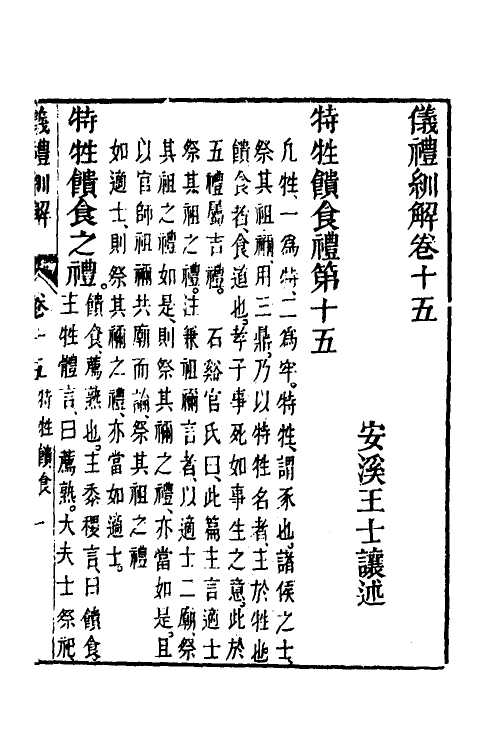 儀禮紃解卷十五
安溪王士讓述
特牲饋食禮第十五
凡牲、一爲特、二爲牢。特牲、謂豕也。諸侯之士、
祭其祖禰、用三鼎、乃以特牲名者、主於牲也
饋食者、食道也。孝子事死如事生之意。此於
五禮屬吉禮。　石谿官氏曰、此篇主言適士
祭其祖之禮。注兼祖禰言者、以適士二廟、祭
其祖之禮如是、則祭其禰之禮、亦當如是。且
以官師祖禰共廟而論、祭其祖之禮
如適士、則祭其禰之禮、亦當如適士。
特牲饋食之禮。
饋食、薦熟也。主黍稷言、曰饋食。
主牲體言、曰薦熟。大夫士祭祀、
儀禮紃解
卷十五特牲饋食
一